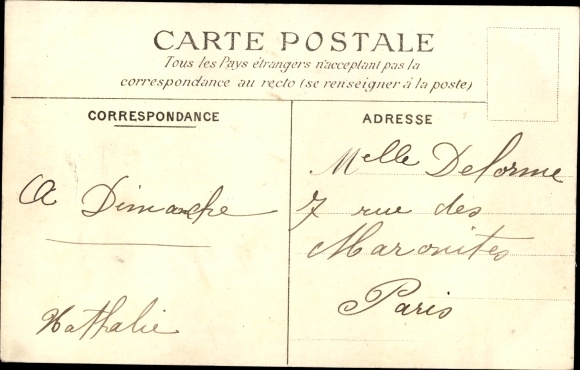 CARTE POSTALE
Tous les Pays étrangers n'acceptant pas la
correspondance au recto (se renseigner à la poste)
CORRESPONDANCE
A Dimanche
Nathalie
ADRESSE
Melle Delorme
7 rue des
Maronites
Paris